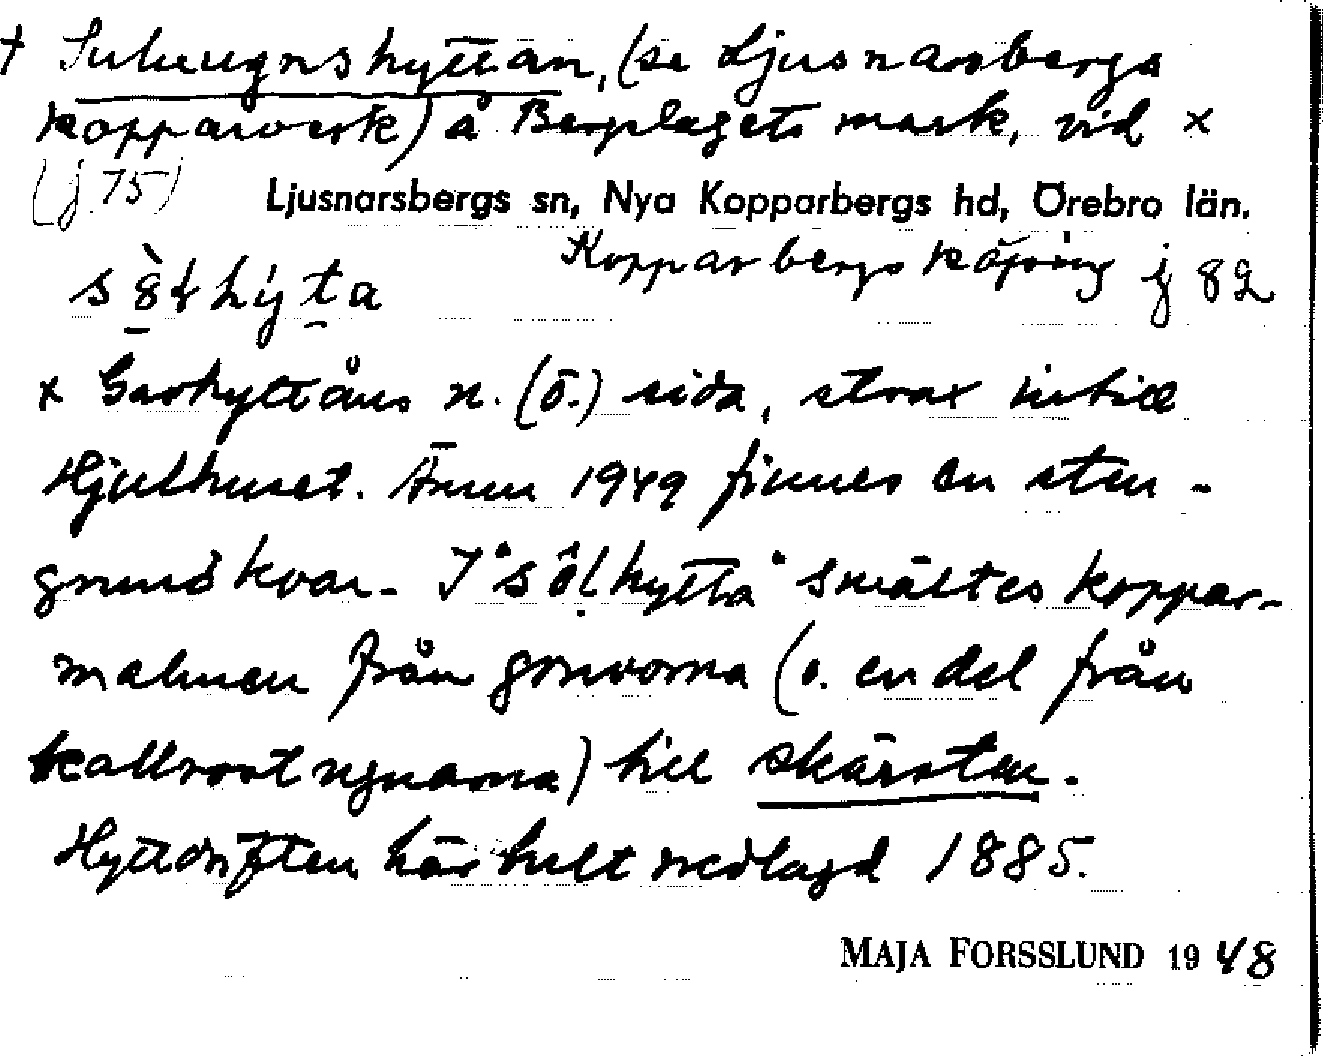 † Suluugnshyttan, (se Ljusnarsbergs
kopparverk) å Bergslagets mark, vid ×
(j 75) Ljusnarsbergs sn, Nya Kopparbergs hd, Örebro län.
Kopparbergs köping j 82
× Garhyttåns n. (ö.) sida, strax intill
Hjulhuset. Ännu 1949 finnes en sten-
grund kvar. I "sölhytta" smältes koppar-
malmen från gruvorna (o. en del från
kallrostugnarna) till skärsten.
Hyttdriften här helt nedlagd 1885.
MAJA FORSSLUND 1948